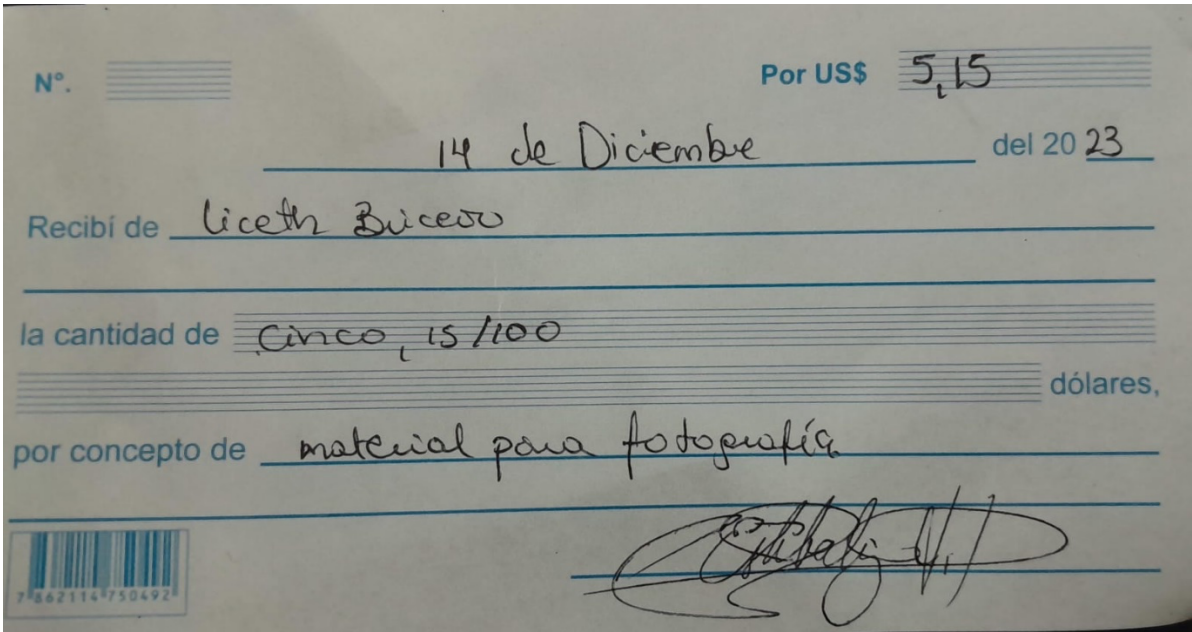 Nº. Por US$ 5,15
14 de Diciembre del 20 23
Recibí de Liceth Briceño
la cantidad de Cinco, 15/100
dólares,
por concepto de material para fotografía
7 862114 750492